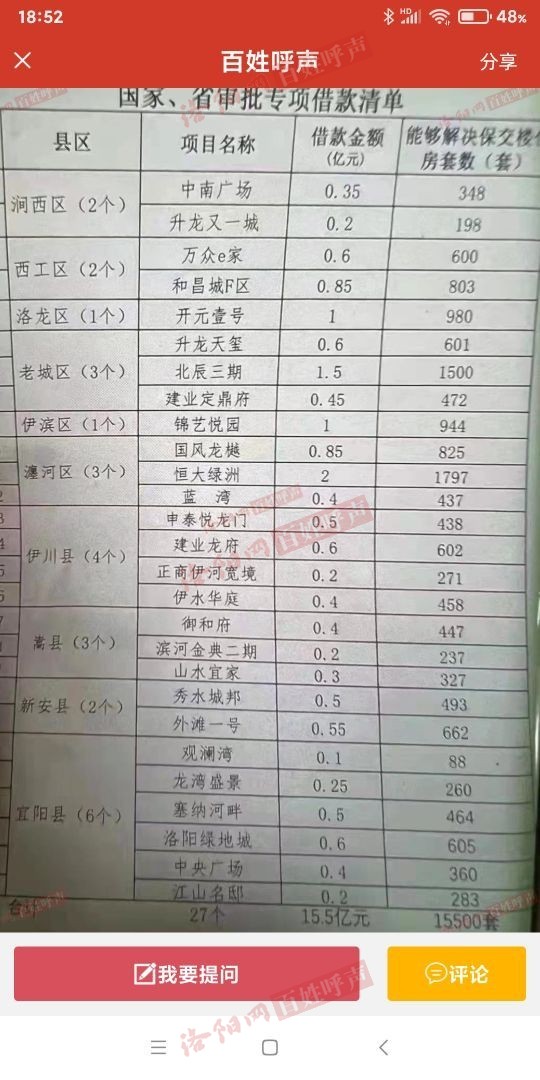 18:52
HD
48%
百姓呼声
分享
国家、省审批专项借款清单
县区 项目名称 借款金额(亿元) 能够解决保交楼 房套数(套)
涧西区(2个) 中南广场 0.35 348
升龙又一城 0.2 198
西工区(2个) 万众e家 0.6 600
和昌城F区 0.85 803
洛龙区(1个) 开元壹号 1 980
老城区(3个) 升龙天玺 0.6 601
北辰三期 1.5 1500
建业定鼎府 0.45 472
伊滨区(1个) 锦艺悦园 1 944
瀍河区(3个) 国风龙樾 0.85 825
恒大绿洲 2 1797
蓝 湾 0.4 437
伊川县(4个) 申泰悦龙门 0.5 438
建业龙府 0.6 602
正商伊河宽境 0.2 271
伊水华庭 0.4 458
嵩县(3个) 御和府 0.4 447
滨河金典二期 0.2 237
山水宜家 0.3 327
新安县(2个) 秀水城邦 0.5 493
外滩一号 0.55 662
宜阳县(6个) 观澜湾 0.1 88
龙湾盛景 0.25 260
塞纳河畔 0.5 464
洛阳绿地城 0.6 605
中央广场 0.4 360
江山名邸 0.2 283
27个 15.5亿元 15500套
我要提问
评论
洛阳网百姓呼声